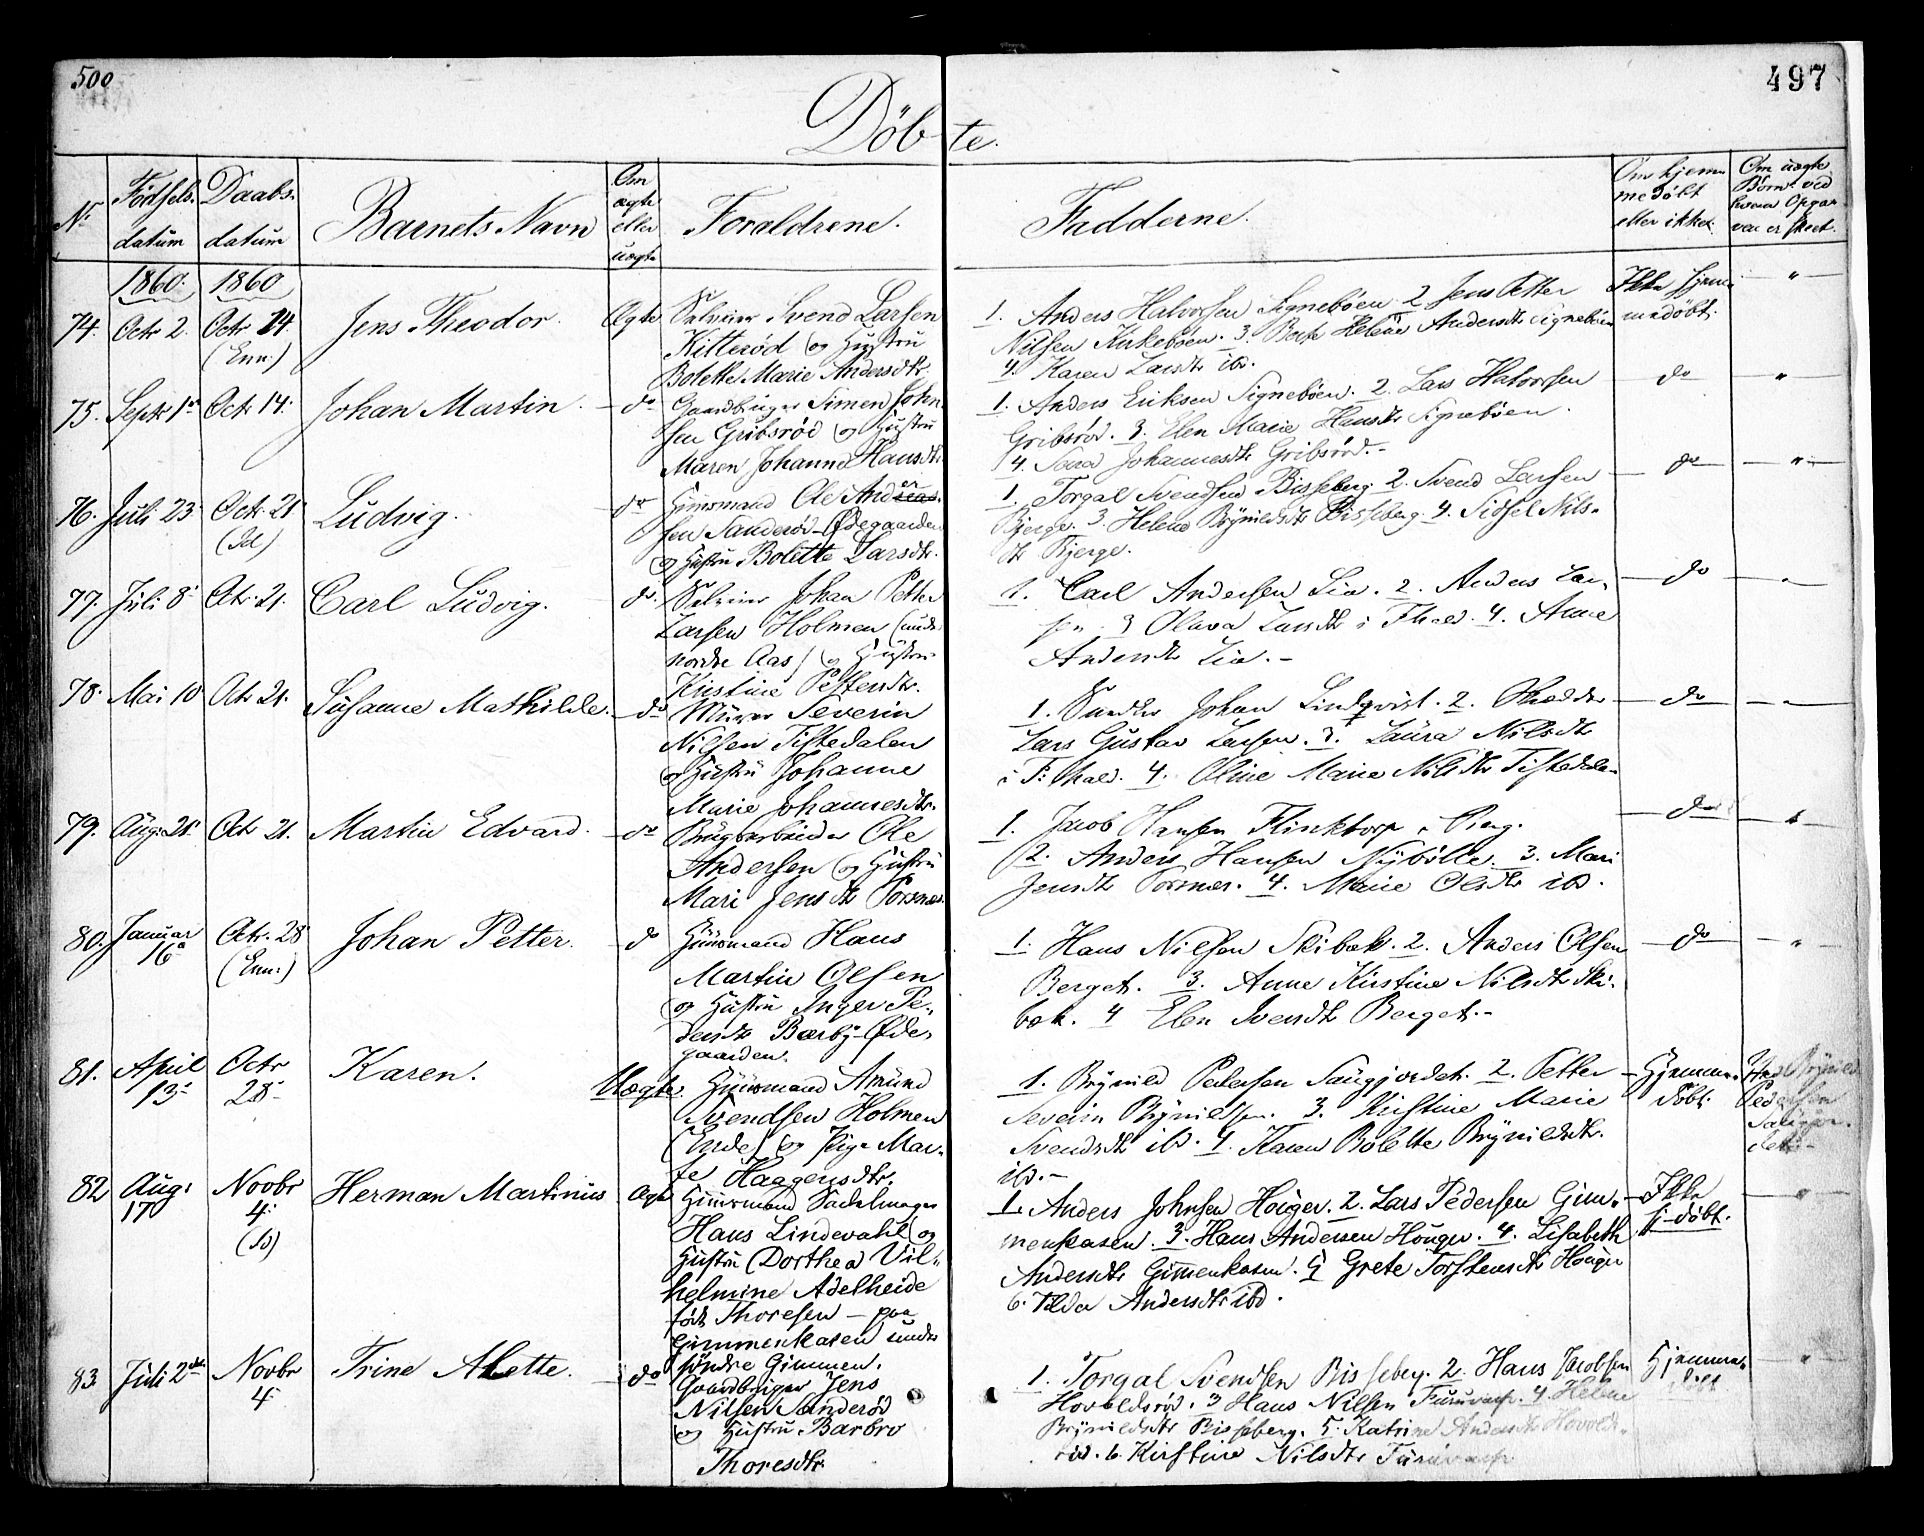 500
497
Døbte.
No
Fødsels-
datum
Daabs-
datum
Barnets Navn
Om
ægte
eller
uægte
Forældrene.
Fadderne.
Om hjem-
medøbt
eller ikke.
Om uægte
Børn: ved
hvem Opga-
ven er skeet.
1860. 1860
74. Octr 2. Octr 14. (Enn:) Jens Theodor. Ægte
Selveier Svend Larsen
Kitterød og Hustru
Bolette Marie Andersdtr.
1. Anders Halvorsen Signebøen. 2. Jens Petter
Nilsen Kirkebøen. 3. Helene Andersdtr Signebøen
4. Karen Larsdtr ibd.
Ikke hjem-
medøbt.
"
75. Septr 1st Octr 14. Johan Martin. do
Gaardbruger Simen John-
sen Gribsrød og Hustru
Maren Johanne Hansdtr.
1. Anders Eriksen Signebøen. 2. Lars Halvorsen
Gribsrød. 3. Elen Marie Hansdtr Signebøen.
4. Johannesdtr Gribsrød.-
do
"
76. Juli 23. Octr. 21 Ludvig. do
Huusmand Ole Anders-
sen Sanderød-Ødegaarden
og Hustru Bolette Larsdtr.
1. Torgal Svendsen Bisseberg. 2. Svend Larsen
Bjerge. 3. Helene Brynildsdtr Bisseberg. 4. Sidsel Nils-
dtr Bjerge.
do
"
77. Juli 8. Octr. 21. Carl Ludvig. do.
Selveier Johan Petter
Larsen Holmen (under
nordre Aas) og Hustru
Kirstine Pettersdtr.
1. Carl Andersen Lia. 2. Anders Lar-
sen. 3 Olava Larsdtr i Fhald. 4. Anne
Andersdtr Lia.-
do
"
78. Mai 10 Octr 21. Susanne Mathilde. do
Murer Severin
Nilsen Tistedalen
og Hustru Johanne
Marie Johannesdtr.
1. Johan Lindqvist. 2.
Lars Gustav Larsen. 3. Laura Nilsdtr
i F: hald. 4. Oline Marie Nilsdtr Tistedalen
do
"
79. Aug: 21. Octr 21. Martin Edvard. do
Brugsarbeider Ole
Andersen og Hustru
Mari Jensdtr Torsnes.
1. Jacob Hansen Flinktorp i Berg.
2. Anders Hansen Nybølle. 3. Mari
Jensdtr Torsnes. 4. Marie Olsdtr ibd.
do
"
80. Januar 16 Octr. 28 (Enn:) Johan Petter. do
Huusmand Hans
Martin Olsen
og Hustru Inger Pe-
dersdtr Bærby-Øde-
gaarden.
1. Hans Nilsen Skibæk. 2. Anders Olsen
Berget. 3. Anne Kirstine Nilsdtr Ski-
bæk. 4 Elen Svensdtr Berget.-
do
"
81. April 13. Octr 28. Karen. Uægte.
Huusmand Amund
Svendsen Holmen
(Enke) og Pige Mar-
te Haagensdtr.
1. Brynild Pedersen Saugjordet. 2. Petter
Severin Brynildsen. 3. Kirstine Marie
Svendsdtr ibd. 4. Karen Bolette Brynildsdtr.
ibd.-
Hjemme-
døbt.
Brynild
Pedersen
Saugjor-
det.-
82 Aug: 17 Novbr 4. Herman Martinus Ægte
Huusmand Sadelmager
Hans Lindevahl og
Hustru (Dorthea Vil-
helmine Adelheide
født Thoresen - paa
Gimmenkasen under
søndre Gimmen.
1. Anders Johnsen Houger. 2. Lars Pedersen Gim-
menkasen. 3. Hans Andersen Houger. 4. Lisabeth
Andersdtr Gimmenkasen. 5 Grete Torstensdtr Houger
6. Andersdtr ibd.
Ikke
hj-døbt.
"
83 Juli 2den Novbr 4. Trine Alette. do
Gaardbruger Jens
Nilsen Sanderød
og Hustru Barbro
Thoresdtr.
1. Torgal Svendsen Bisseberg. 2. Hans Jacobsen
Hovoldsrød. 3 Hans Nilsen 4. Helene
Brynildsdtr Bisseberg. 5. Katrine Andersdtr Hovolds-
rød. 6. Kirstine Nilsdtr
Hjemme-
døbt
"